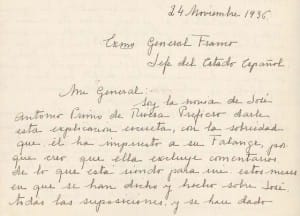 24 Noviembre 1936
Exmo General Franco
Jefe del Estado Español
Mi General:
Soy la novia de José
Antonio Primo de Rivera Prefiero darle
esta explicación escueta, con la sobriedad
que él ha impuesto a su Falange, por
que creo que ella excluye comentarios
de lo que esta siendo para mi estos meses
en que se han dicho y hecho sobre José,
todas las suposiciones, y se han dado